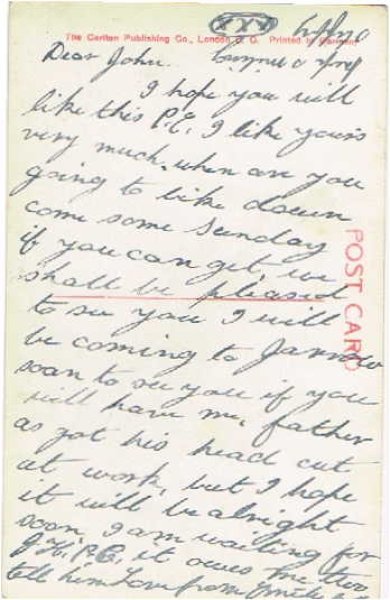 The Carlton Publishing Co., London E. C. Printed in Germany
Dear John.
I hope you will
like this P.C. I like yours
very much. when are you
going to like down
come some Sunday
if you can get, we
shall be pleased
to see you I will
be coming to Jarrow
soon to see you if you
will have me, father
as got his head cut
at work, but I hope
it will be alright
soon, I am waiting for
P.C. it owes me two
tell him Love from
POST CARD